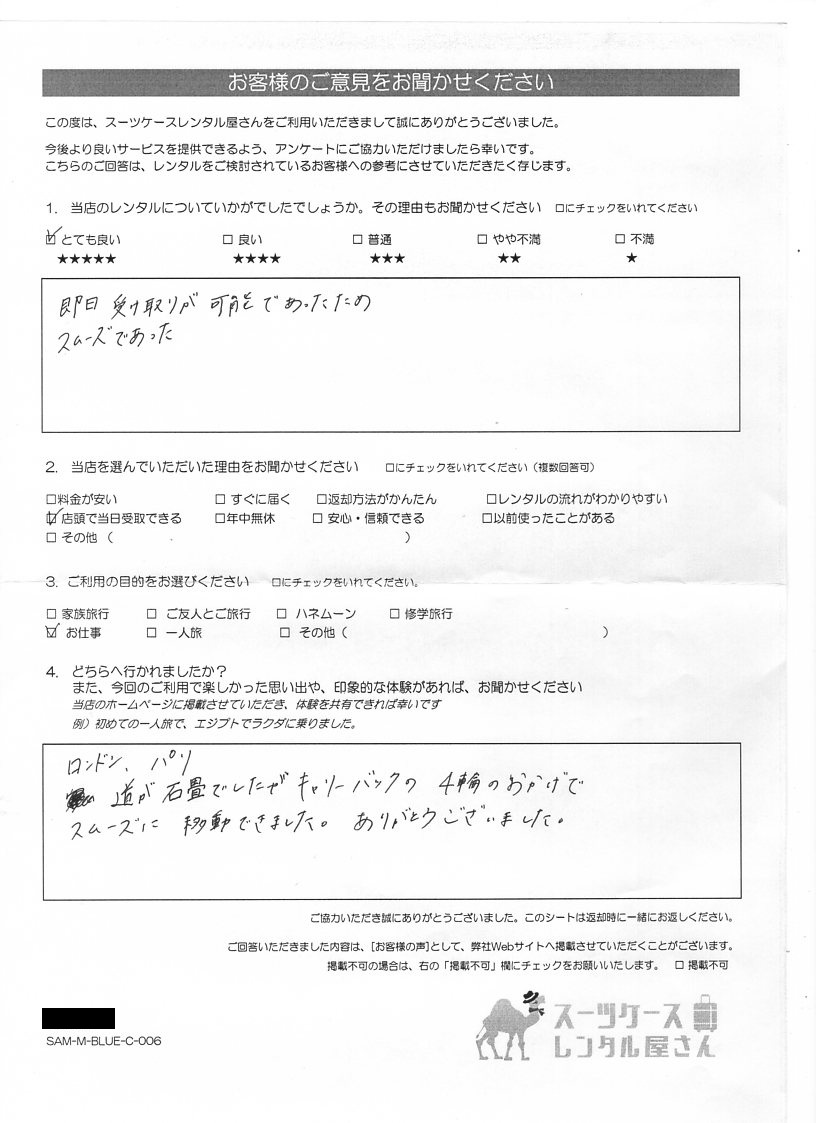 お客様のご意見をお聞かせください
この度は、スーツケースレンタル屋さんをご利用いただきまして誠にありがとうございました。
今後より良いサービスを提供できるよう、アンケートにご協力いただけましたら幸いです。
こちらのご回答は、レンタルをご検討されているお客様への参考にさせていただきたく存じます。
1. 当店のレンタルについていかがでしたでしょうか。その理由もお聞かせください □にチェックをいれてください
☑ とても良い □ 良い □ 普通 □ やや不満 □ 不満
★★★★★ ★★★★ ★★★ ★★ ★
即日 受け取りが 可能であったため
スムーズであった
2. 当店を選んでいただいた理由をお聞かせください □にチェックをいれてください（複数回答可）
□料金が安い □ すぐに届く □返却方法がかんたん □レンタルの流れがわかりやすい
☑店頭で当日受取できる □年中無休 □ 安心・信頼できる □以前使ったことがある
□ その他（ ）
3. ご利用の目的をお選びください □にチェックをいれてください。
□ 家族旅行 □ ご友人とご旅行 □ ハネムーン □ 修学旅行
☑ お仕事 □ 一人旅 □ その他（ ）
4. どちらへ行かれましたか？
また、今回のご利用で楽しかった思い出や、印象的な体験があれば、お聞かせください
当店のホームページに掲載させていただき、体験を共有できれば幸いです
例）初めての一人旅で、エジプトでラクダに乗りました。
ロンドン、パリ
道が石畳でしたがキャリーバックの 4輪のおかげで
スムーズに 移動できました。ありがとうございました。
ご協力いただき誠にありがとうございました。このシートは返却時に一緒にお返しください。
ご回答いただきました内容は、[お客様の声]として、弊社Webサイトへ掲載させていただくことがございます。
掲載不可の場合は、右の「掲載不可」欄にチェックをお願いいたします。 □ 掲載不可
SAM-M-BLUE-C-006
スーツケース
レンタル屋さん